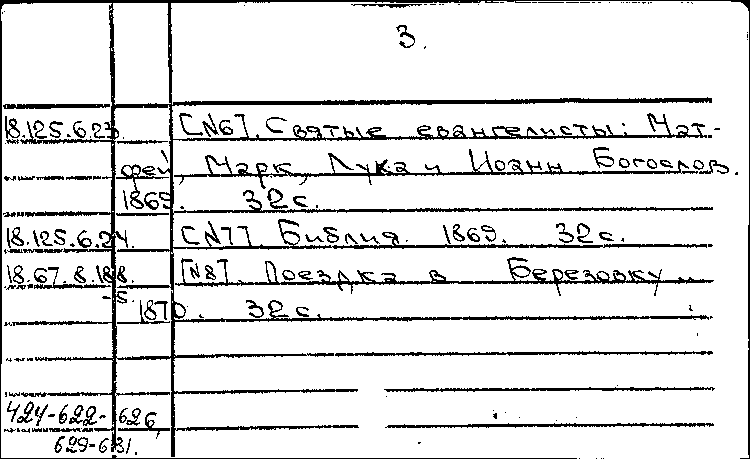 3.
18.125.6.23. [N6]. Святые евангелисты: Мат-
фей, Марк, Лука и Иоанн Богослов.
1869. 32 с.
18.125.6.24. [N7]. Библия. 1869. 32 с.
18.67.8.188. [N8]. Поездка в Березовку...
-5.
1870. 32 с.
424-622-626,
629-631.